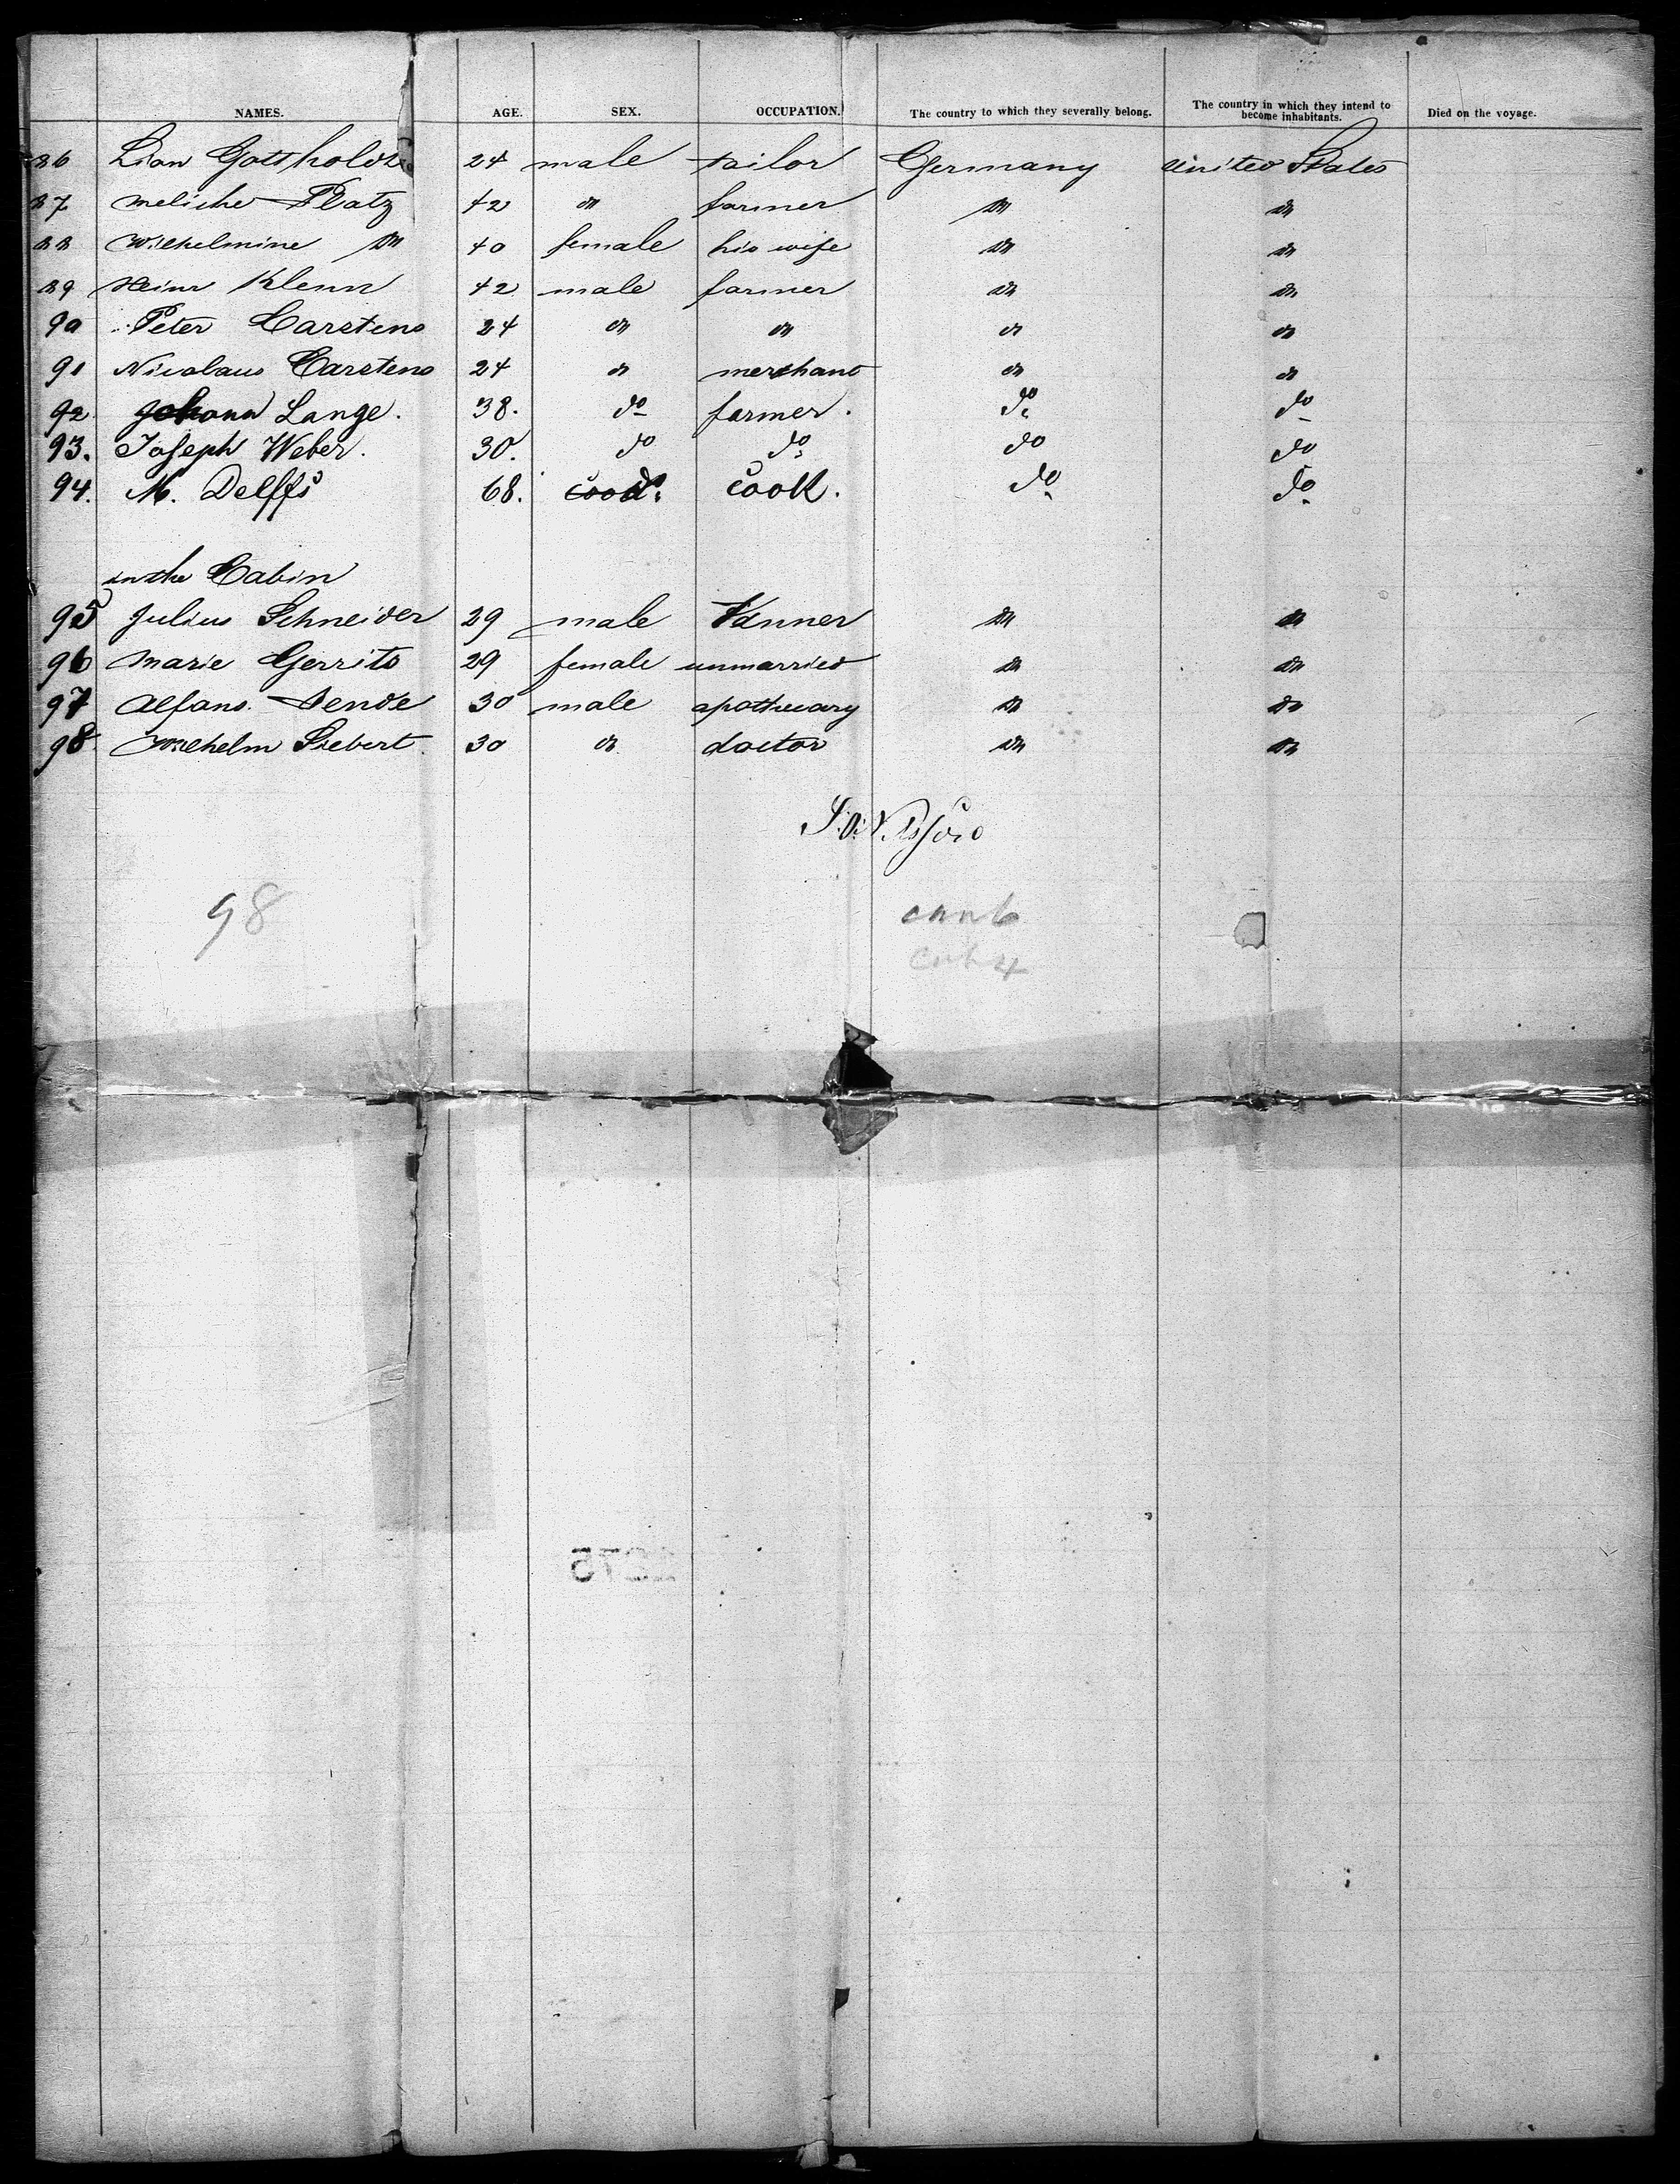 NAMES. AGE. SEX. OCCUPATION. The country to which they severally belong. The country in which they intend to become inhabitants. Died on the voyage.
86 Lion Gottholdt 24 male tailor Germany United States
87 Meliche Platz 42 " farmer " "
88 Wilhelmine " 40 female his wife " "
89 Heinr Klenn 42 male farmer " "
90 Peter Carstens 24 " " " "
91 Nicolaus Carstens 24 " merchant " "
92. Johann Lange. 38. do farmer. do do
93. Joseph Weber. 30. do do do do
94. M. Delffs 68. do cook. do do
in the Cabin
95 Julius Schneider 29 male Tanner " "
96 Marie Gerrits 29 female unmarried " "
97 Alfons. Dende 30 male apothecary " "
98. Wilhelm Siebert 30 " doctor " "
98
2275